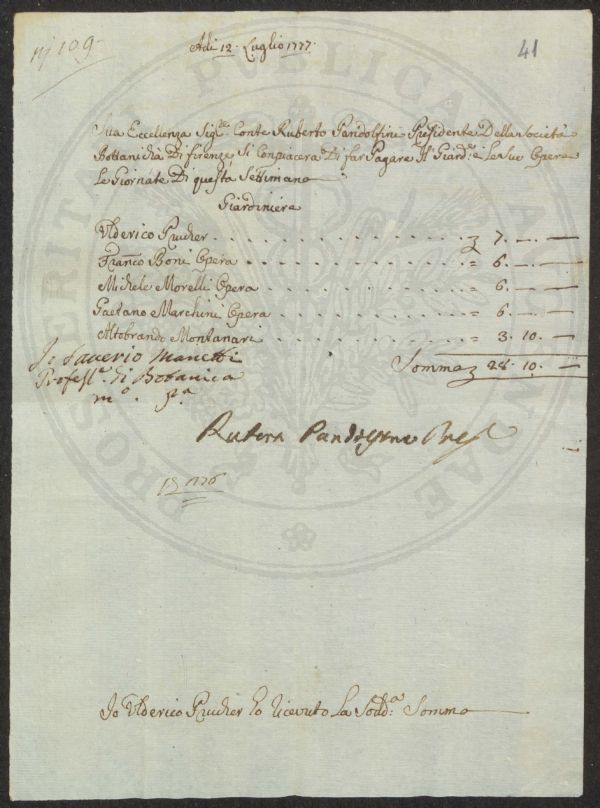 nj 109.
41
Adi 12. Luglio 1777.
Sua Eccellenza Sig:re Conte Ruberto Pandolfini Presidente Della Società
Bottanicha Di firenze, Si Conpiacera Di far Pagare Al Giard:e e Le Sue Opera
Le Giornate Di questa Settimana
Giardiniera
Ulderico Prucher . . . . . . . . . . . . 7. — —
Franco Boni Opera . . . . . . . . . . . = 6. — —
Michele Morelli Opera . . . . . . . . . . = 6. — —
Gaetano Marchini Opera . . . . . . . . . = 6. — —
Altobrando Montanari . . . . . . . . . . = 3. 10. —
Somma 28. 10. —
Io Saverio Manetti
Profess:e di Botanica
m:o p:a
Ruberto Pandolfini Pres:
PROSPERITATI PUBLICAE AUGENDAE
Io Ulderico Prucher ho Ricevuto La Sodd:a Somma